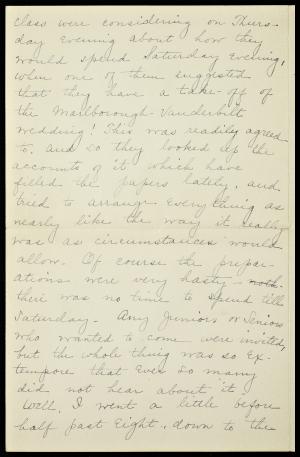 class were considering on Thurs-
day evening about how they
would spend Saturday evening,
when one of them suggested
that they have a take-off of
the Marlborough-Vanderbilt
wedding! This was readily agreed
to, and so they looked up the
accounts of it which have
filled the papers lately, and
tried to arrange everything as
nearly like the way it really
was as circumstances would
allow. Of course the prepar-
ations were very hasty -
there was no time to spend till
Saturday - Any Juniors or Seniors
who wanted to come were invited,
but the whole thing was so ex-
tempore that ever so many
did not hear about it.
Well, I went a little before
half past eight, down to the